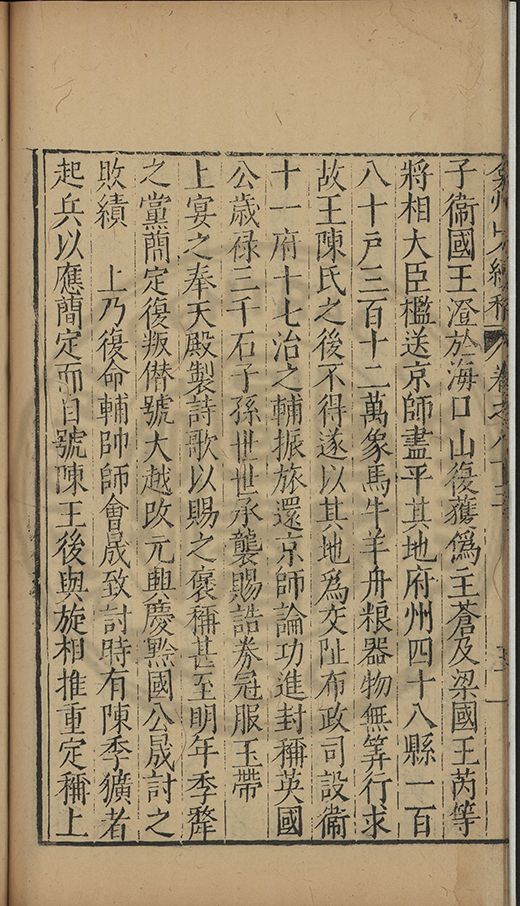 弇州山人續稿 卷之八十三
子衞國王澄於海口山復獲僞王蒼及梁國王芮等
將相大臣檻送京師盡平其地府州四十八縣一百
八十戸三百十二萬象馬牛羊舟粮器物無筭行求
故王陳氏之後不得遂以其地爲交阯布政司設衞
十一府十七治之輔振旅還京師論功進封稱英國
公歲祿三千石子孫世世承襲賜誥券冠服玉帶
上宴之奉天殿製詩歌以賜之褒稱甚至明年季犛
之黨簡定復叛僣號大越改元興慶黔國公晟討之
敗績 上乃復命輔帥師會晟致討時有陳季獷者
起兵以應簡定而自號陳王後與旋相推重定稱上